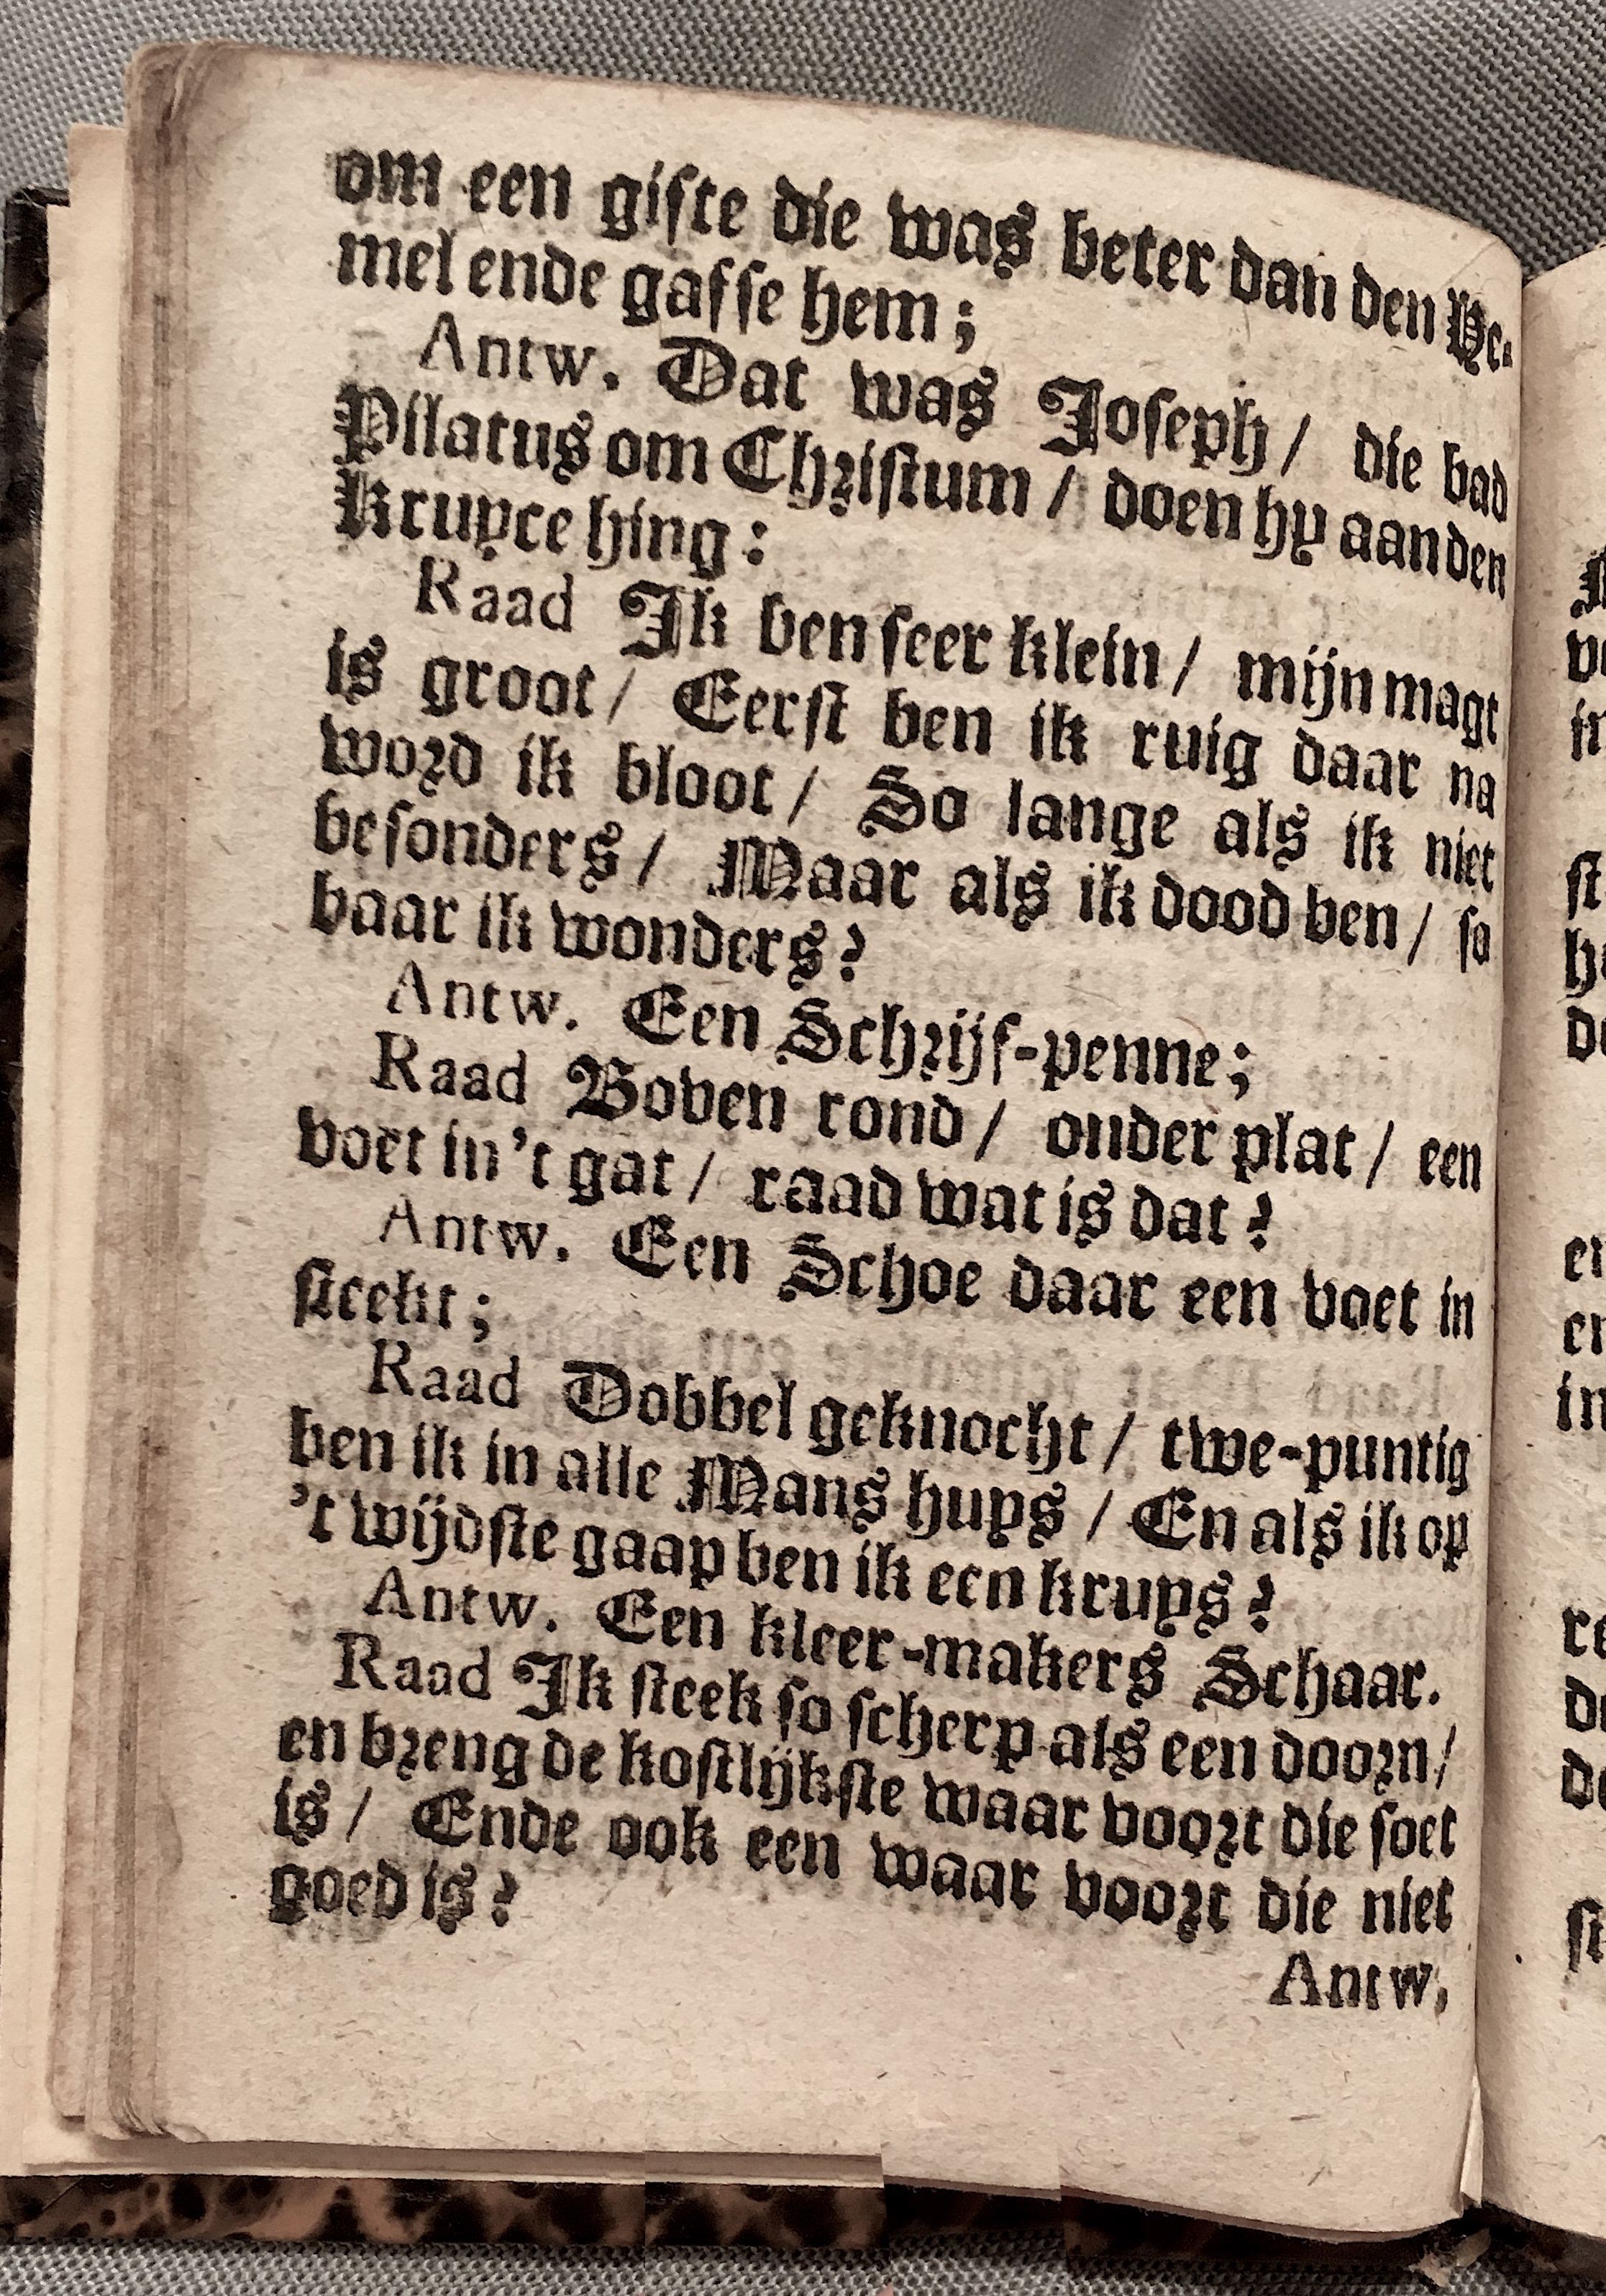 om een gifte die was beter dan den He-
mel ende gaf se hem;
Antw. Dat was Joseph / die bad
Pilatus om Christum / doen hy aan den
Kruyce hing:
Raad Ik ben seer klein / mijn magt
is groot / Eerst ben ik ruig daar na
word ik bloot / So lange als ik niet
besonders / Maar als ik dood ben / so
baar ik wonders?
Antw. Een Schrijf-penne;
Raad Boven rond / onder plat / een
voet in 't gat / raad wat is dat?
Antw. Een Schoe daar een voet in
steekt;
Raad Dobbel geknocht / twe-puntig
ben ik in alle Mans huys / En als ik op
't wijdste gaap ben ik een kruys?
Antw. Een kleer-makers Schaar.
Raad Ik steek so scherp als een doorn /
en breng de kostlijkste waar voort die soet
is / Ende ook een waar voort die niet
goed is?
Antw,